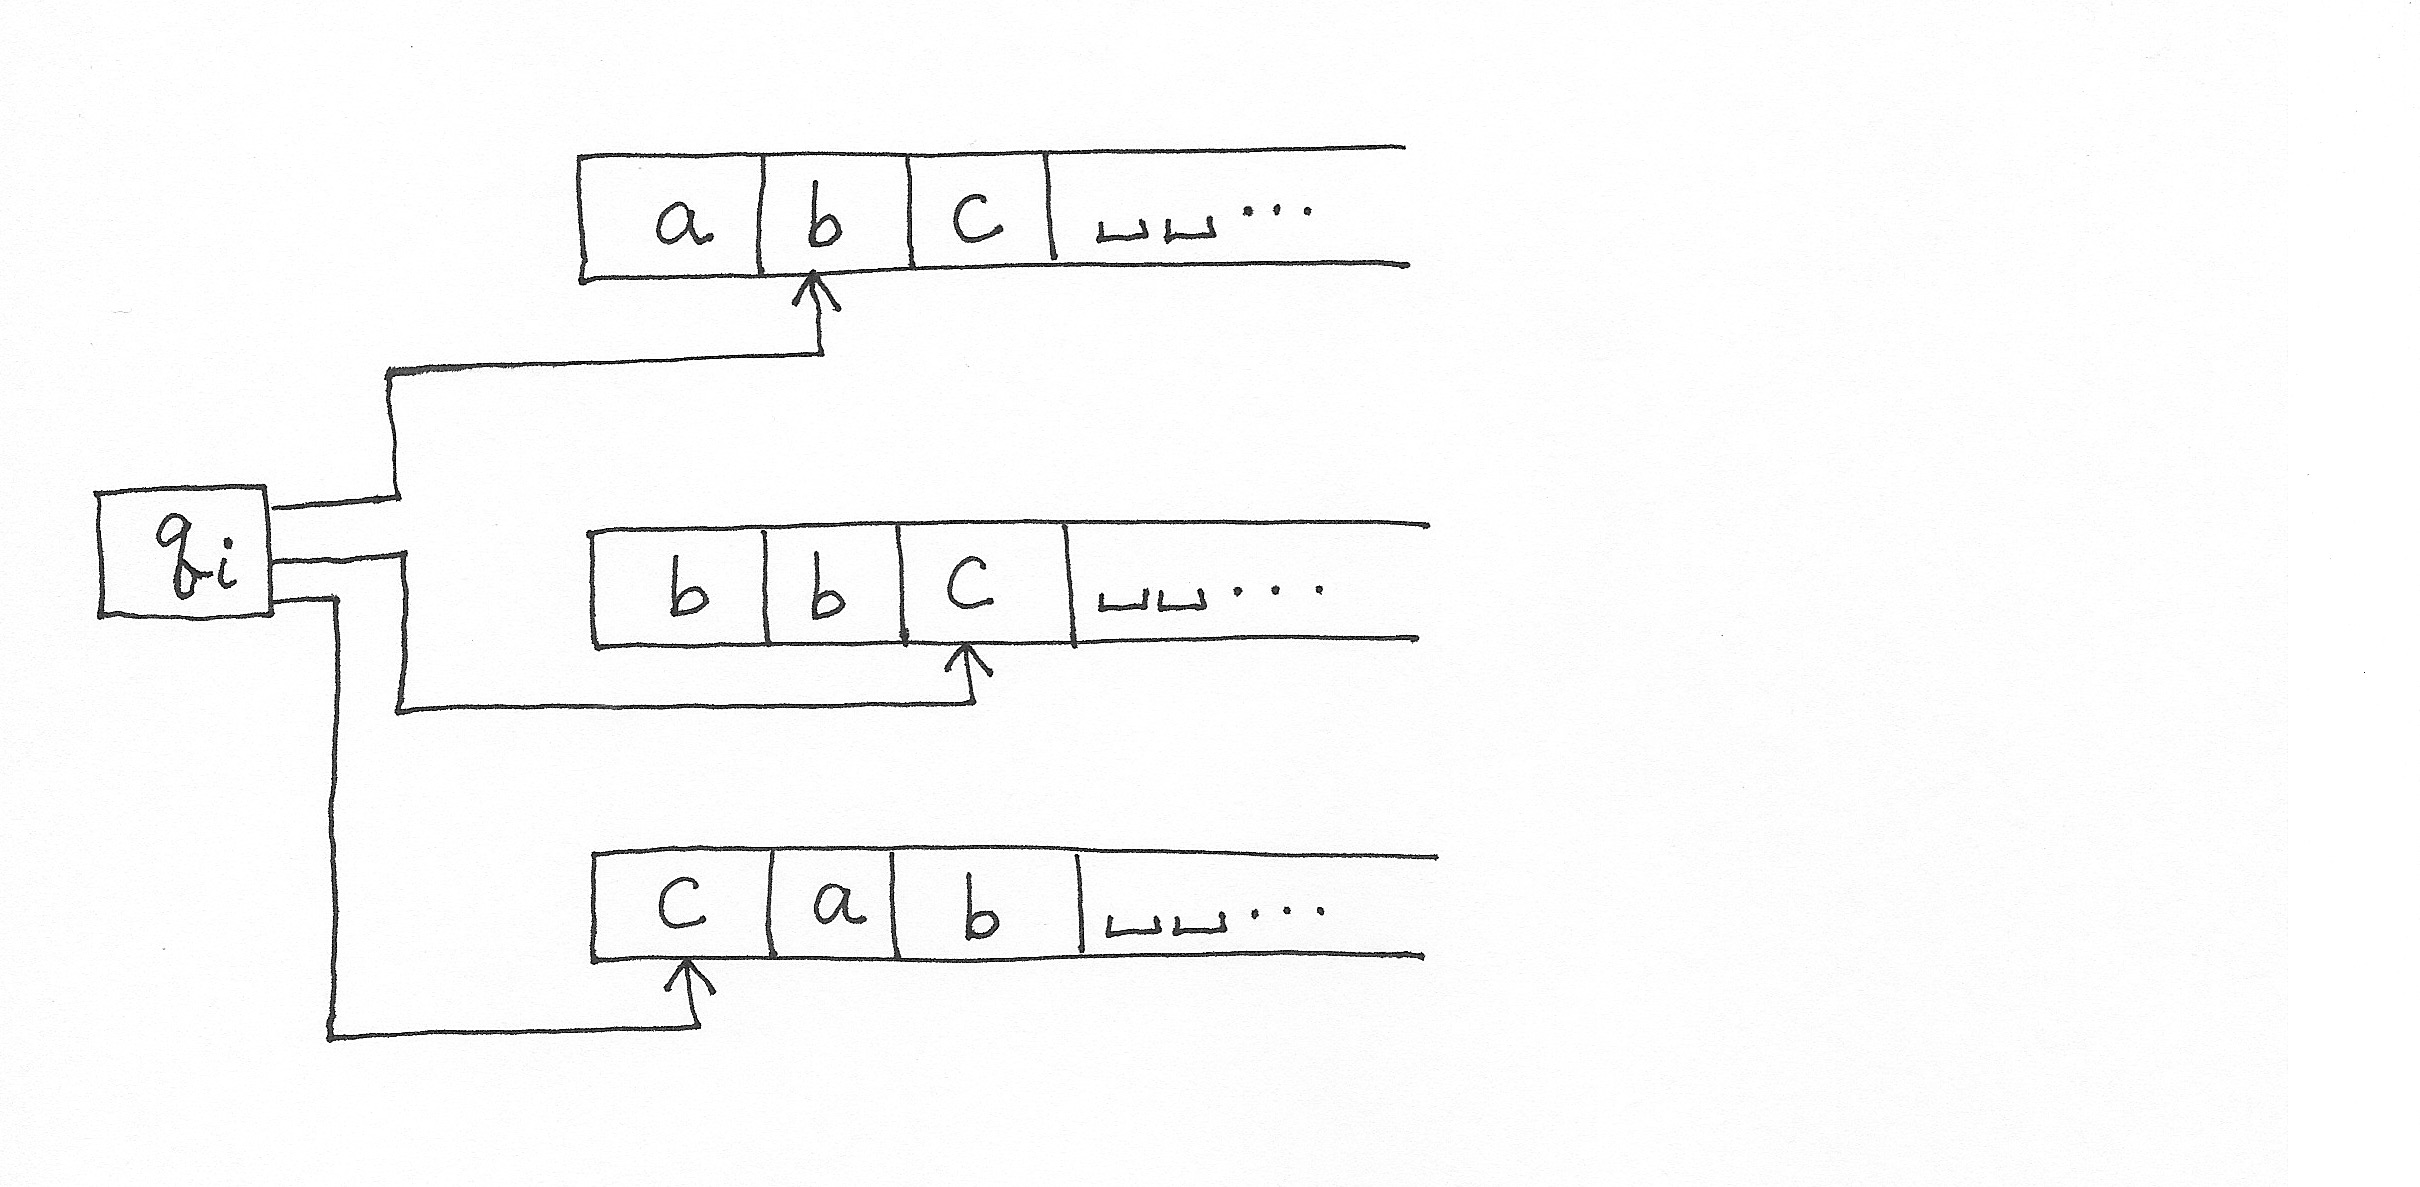 a b c ␣␣...
qi
b b c ␣␣...
c a b ␣␣...